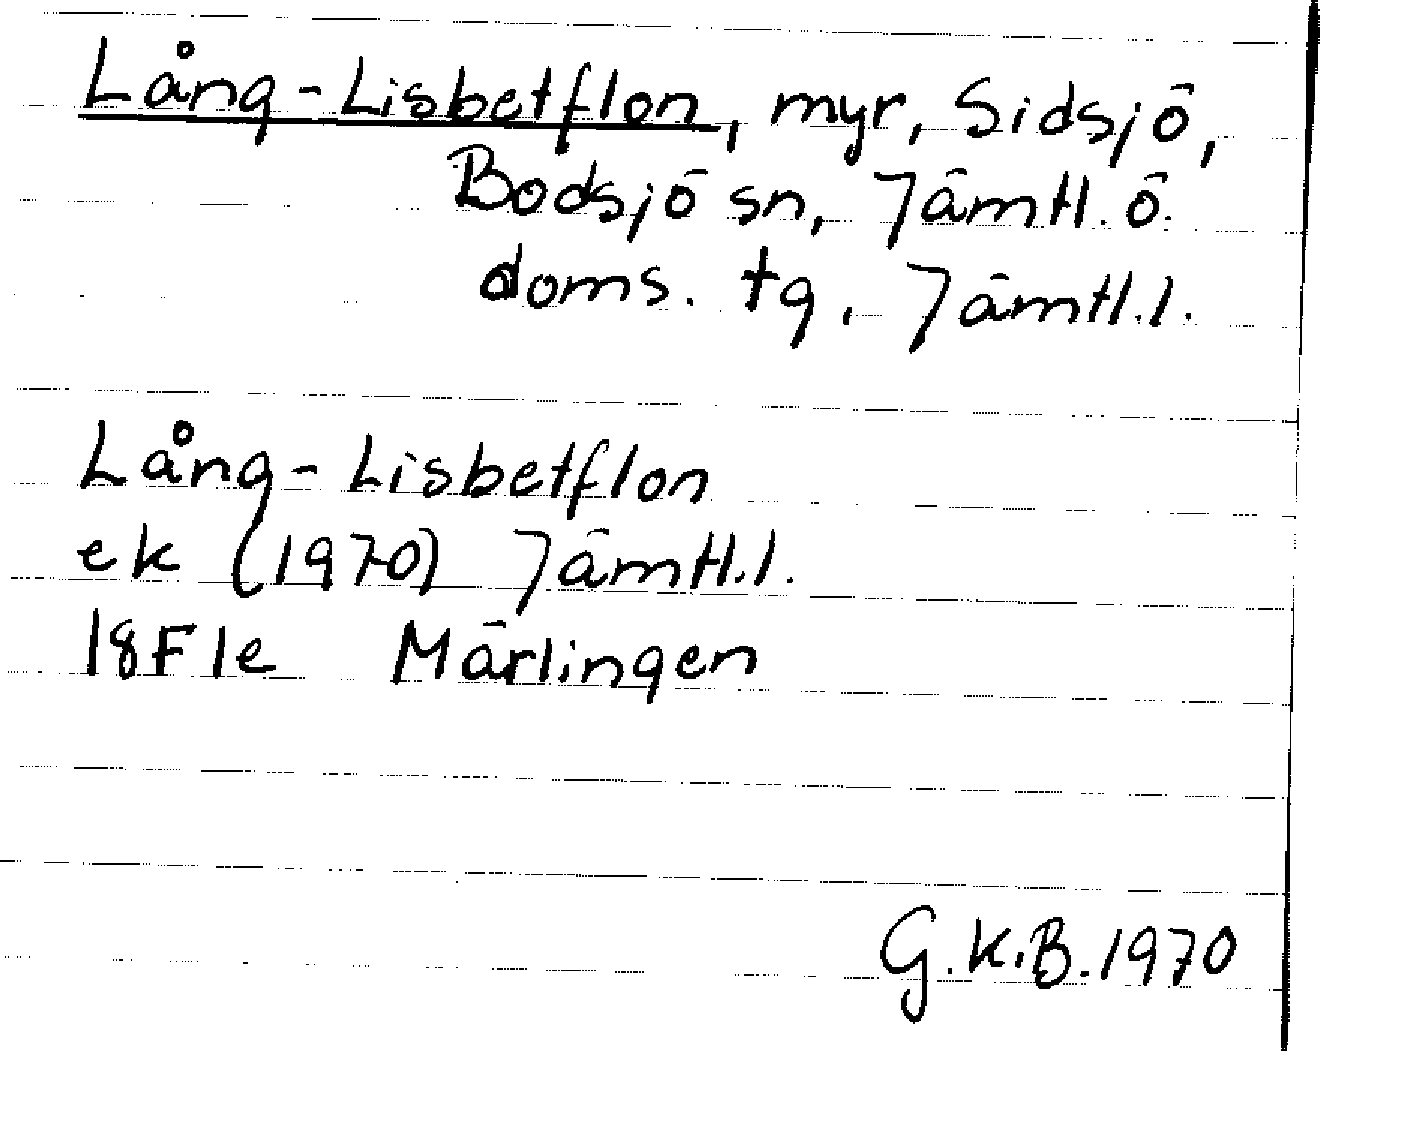 Lång-Lisbetflon, myr, Sidsjö,
Bodsjö sn, Jämtl. ö.
doms. tg, Jämtl.l.
Lång-Lisbetflon
ek (1970) Jämtl.l.
18F1e Märlingen
G.K.B.1970